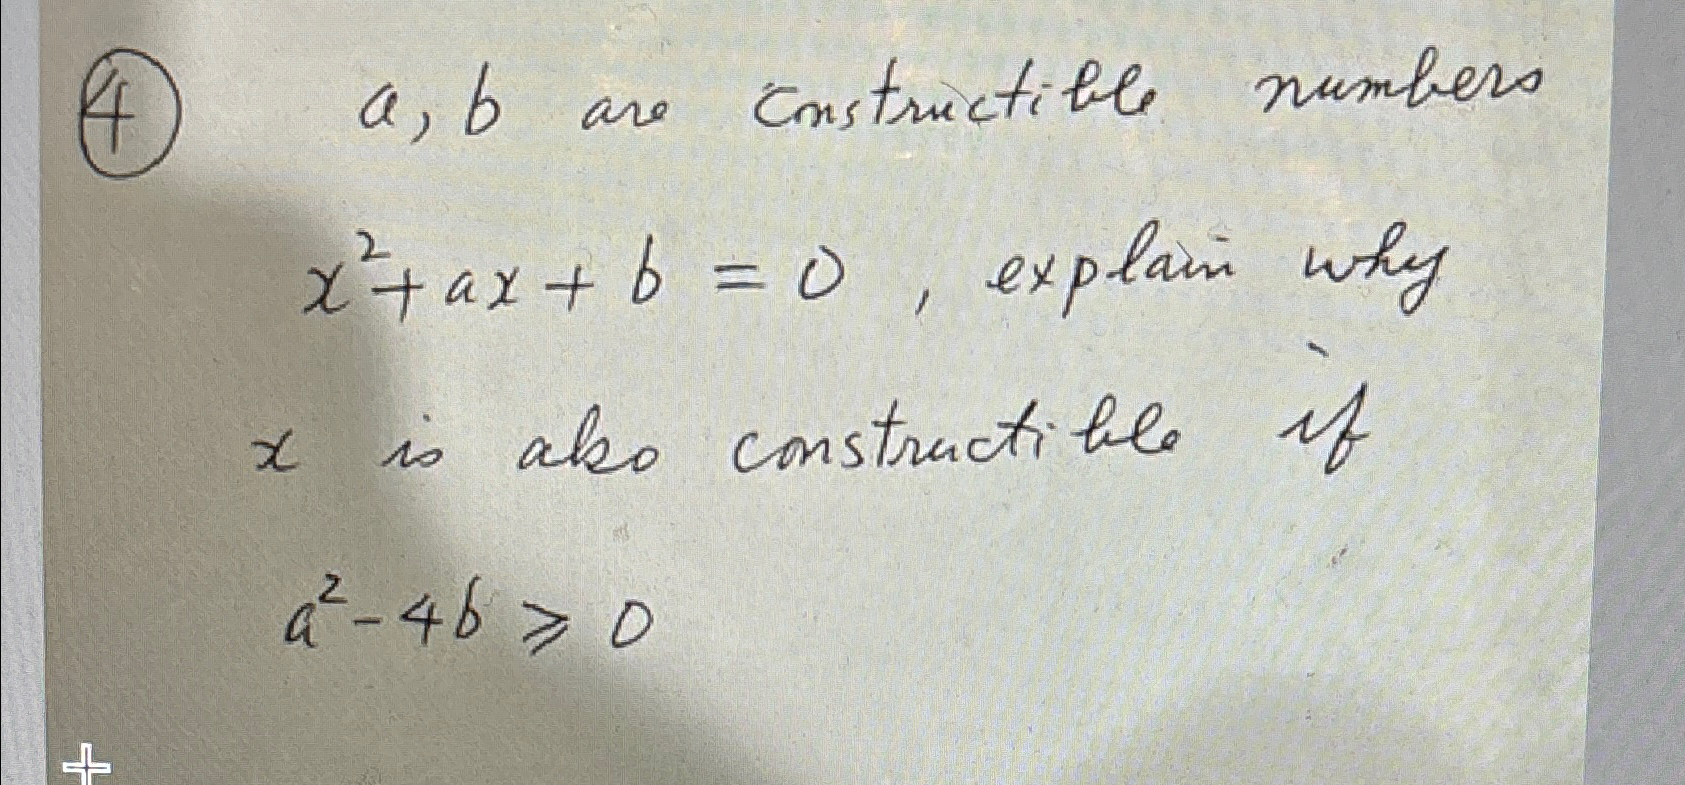 ④ a, b are constructible numbers
x² + ax + b = 0, explain why
x is also constructible if
a² - 4b ⩾ 0